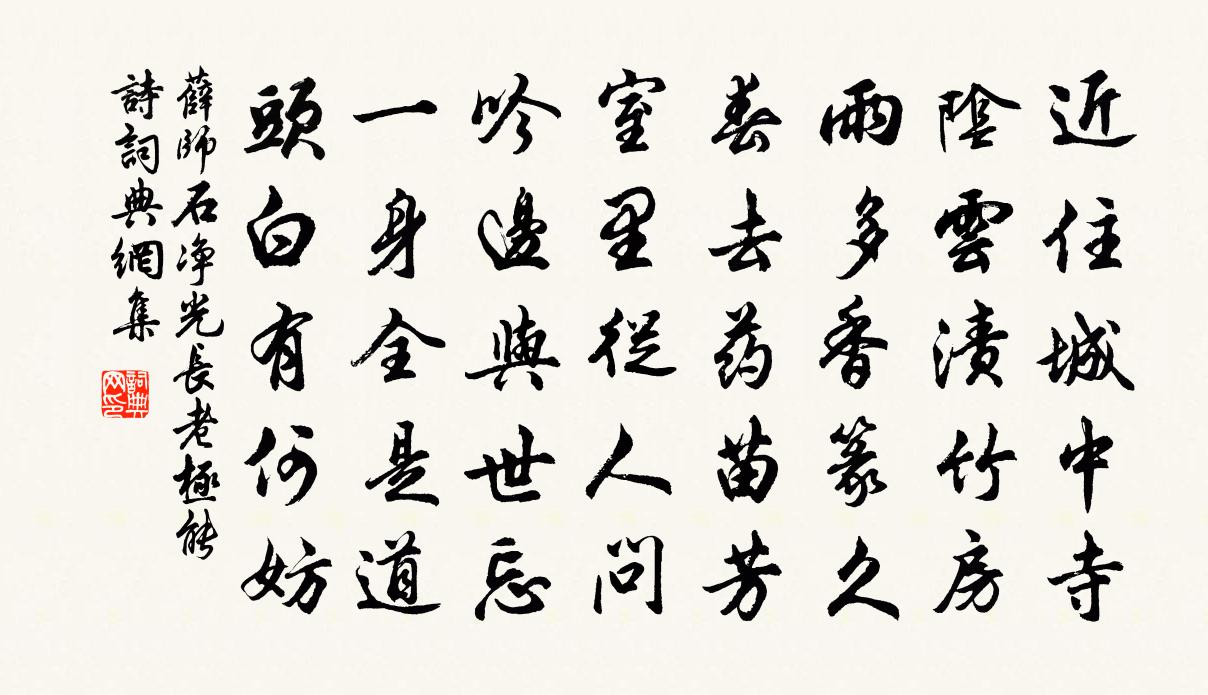 近住城中寺
陰雲漬竹房
雨多香篆久
春去药苗芳
室里從人問
吟邊與世忘
一身全是道
頭白有何妨
薛師石净光長老極能
詩詞典網集
詞典網印